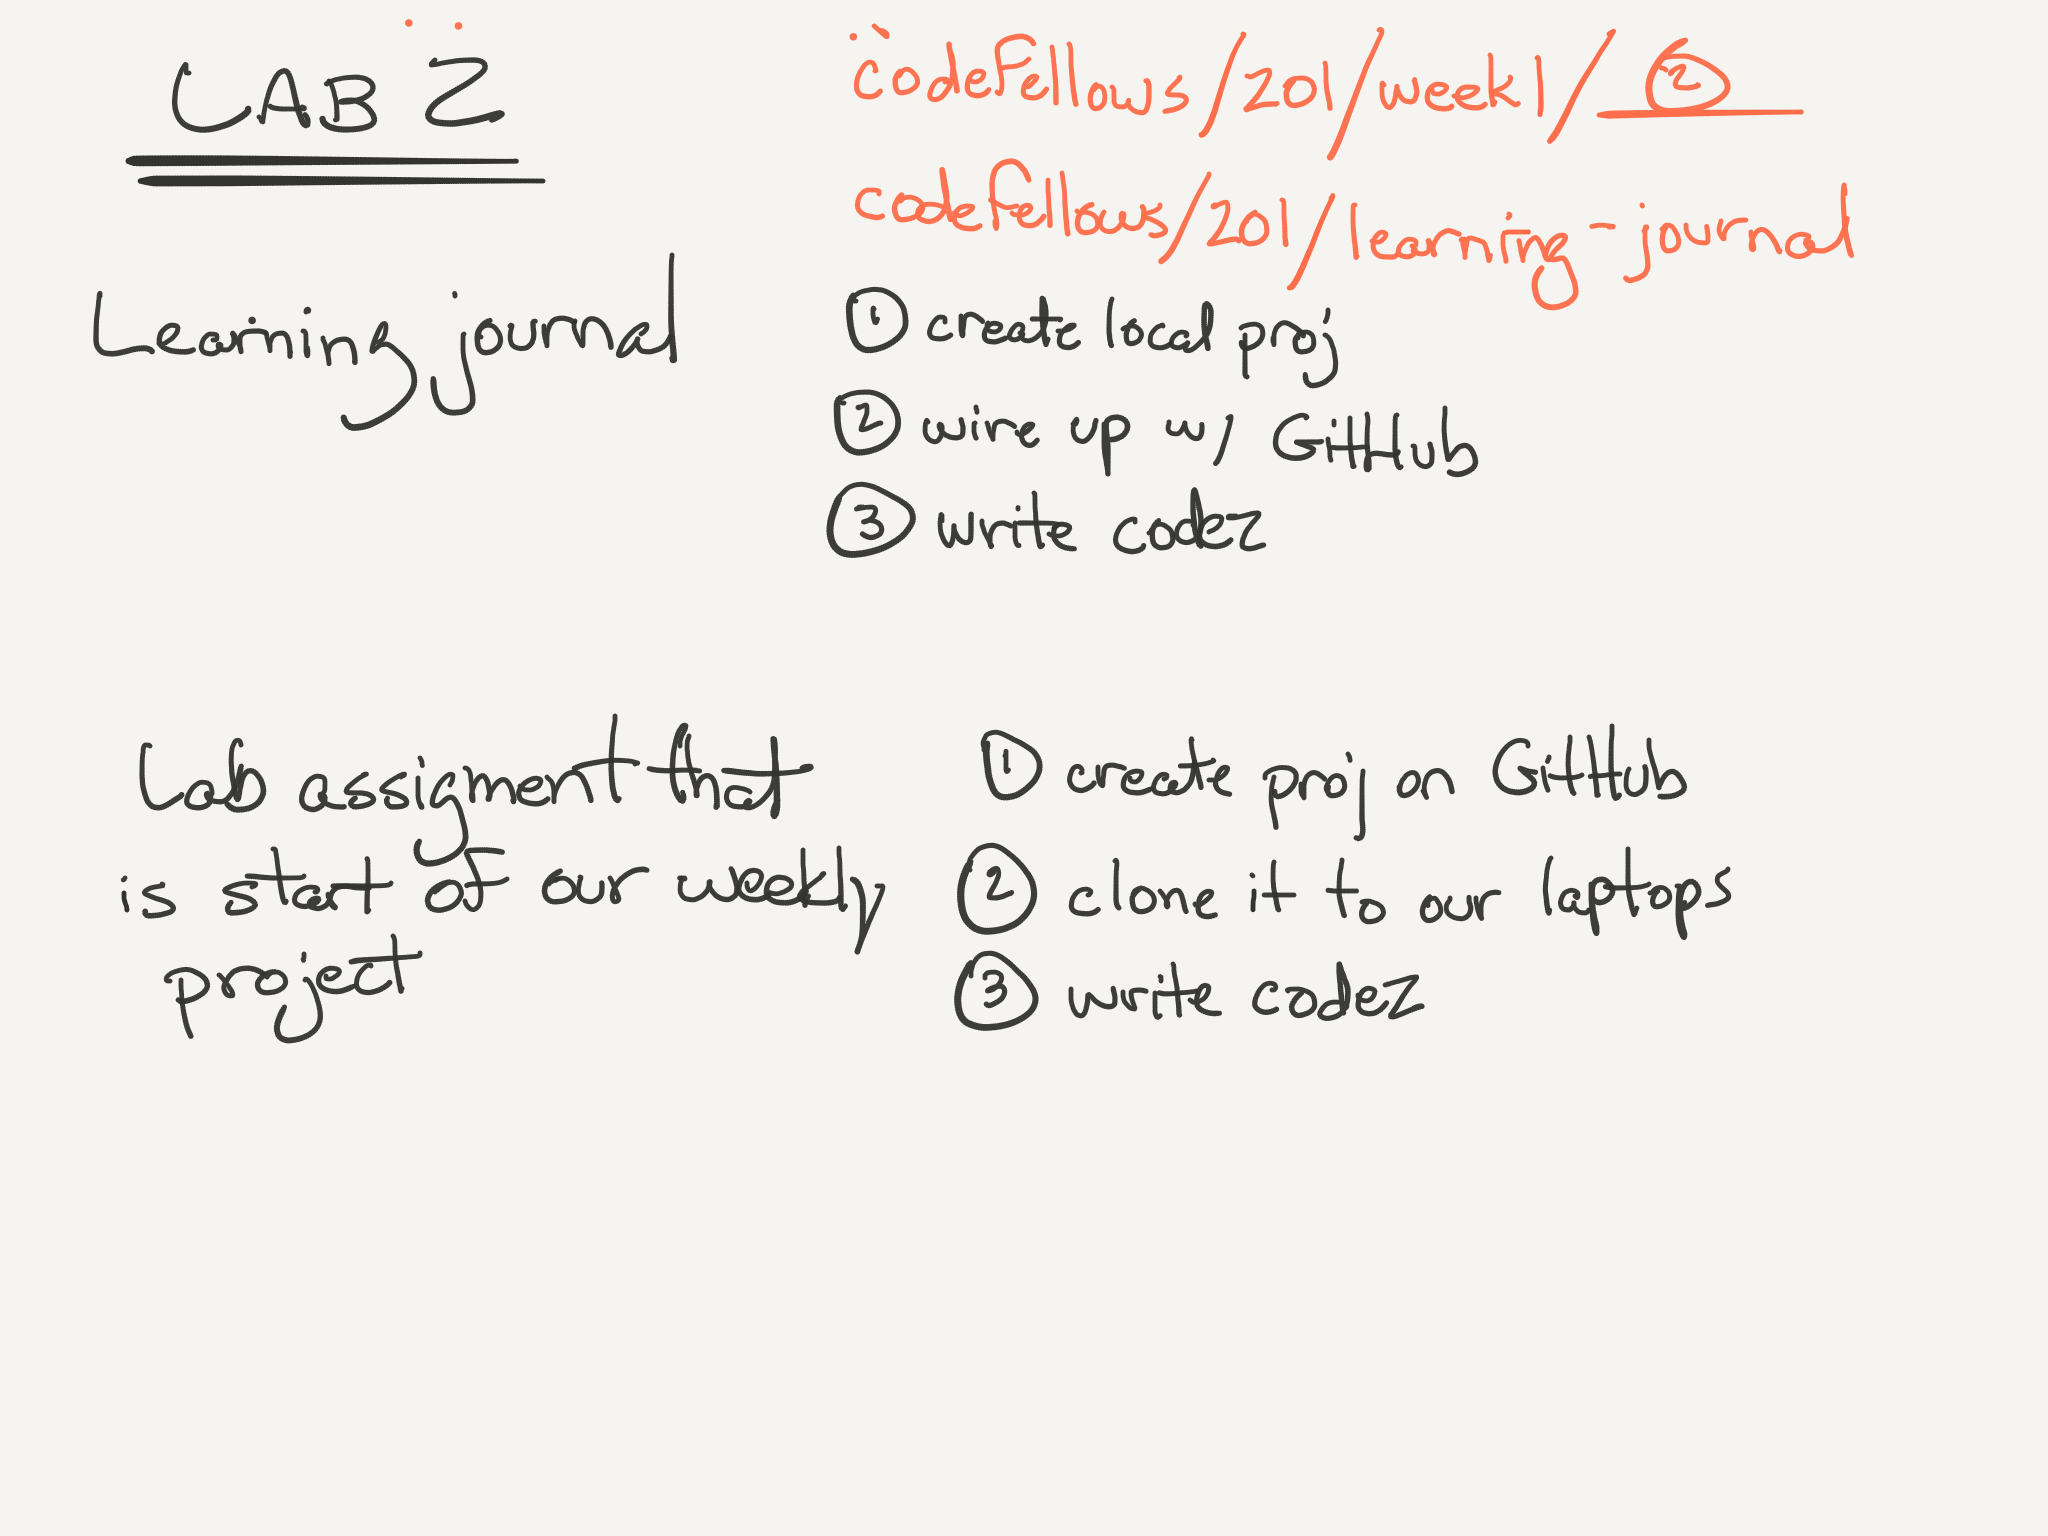 LAB 2
codefellows/201/week1/ 2
codefellows/201/learning-journal
Learning journal
1 create local proj
2 wire up w/ GitHub
3 write codez
Lab assigment that
is start of our weekly
project
1 create proj on GitHub
2 clone it to our laptops
3 write codez